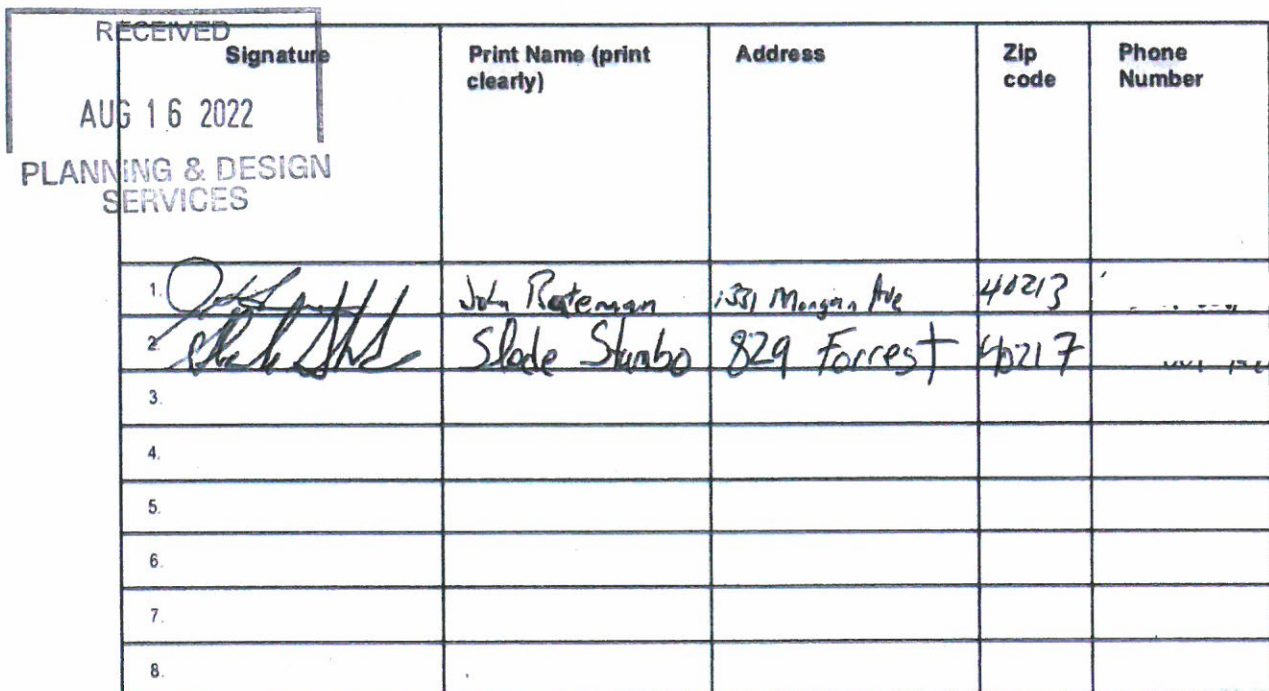 RECEIVED
AUG 16 2022
PLANNING & DESIGN
SERVICES
Signature Print Name (print clearly) Address Zip code Phone Number
1. John Bateman 1331 Morgan Ave 40213
2. Slade Stumbo 829 Forrest 40217
3.
4.
5.
6.
7.
8.